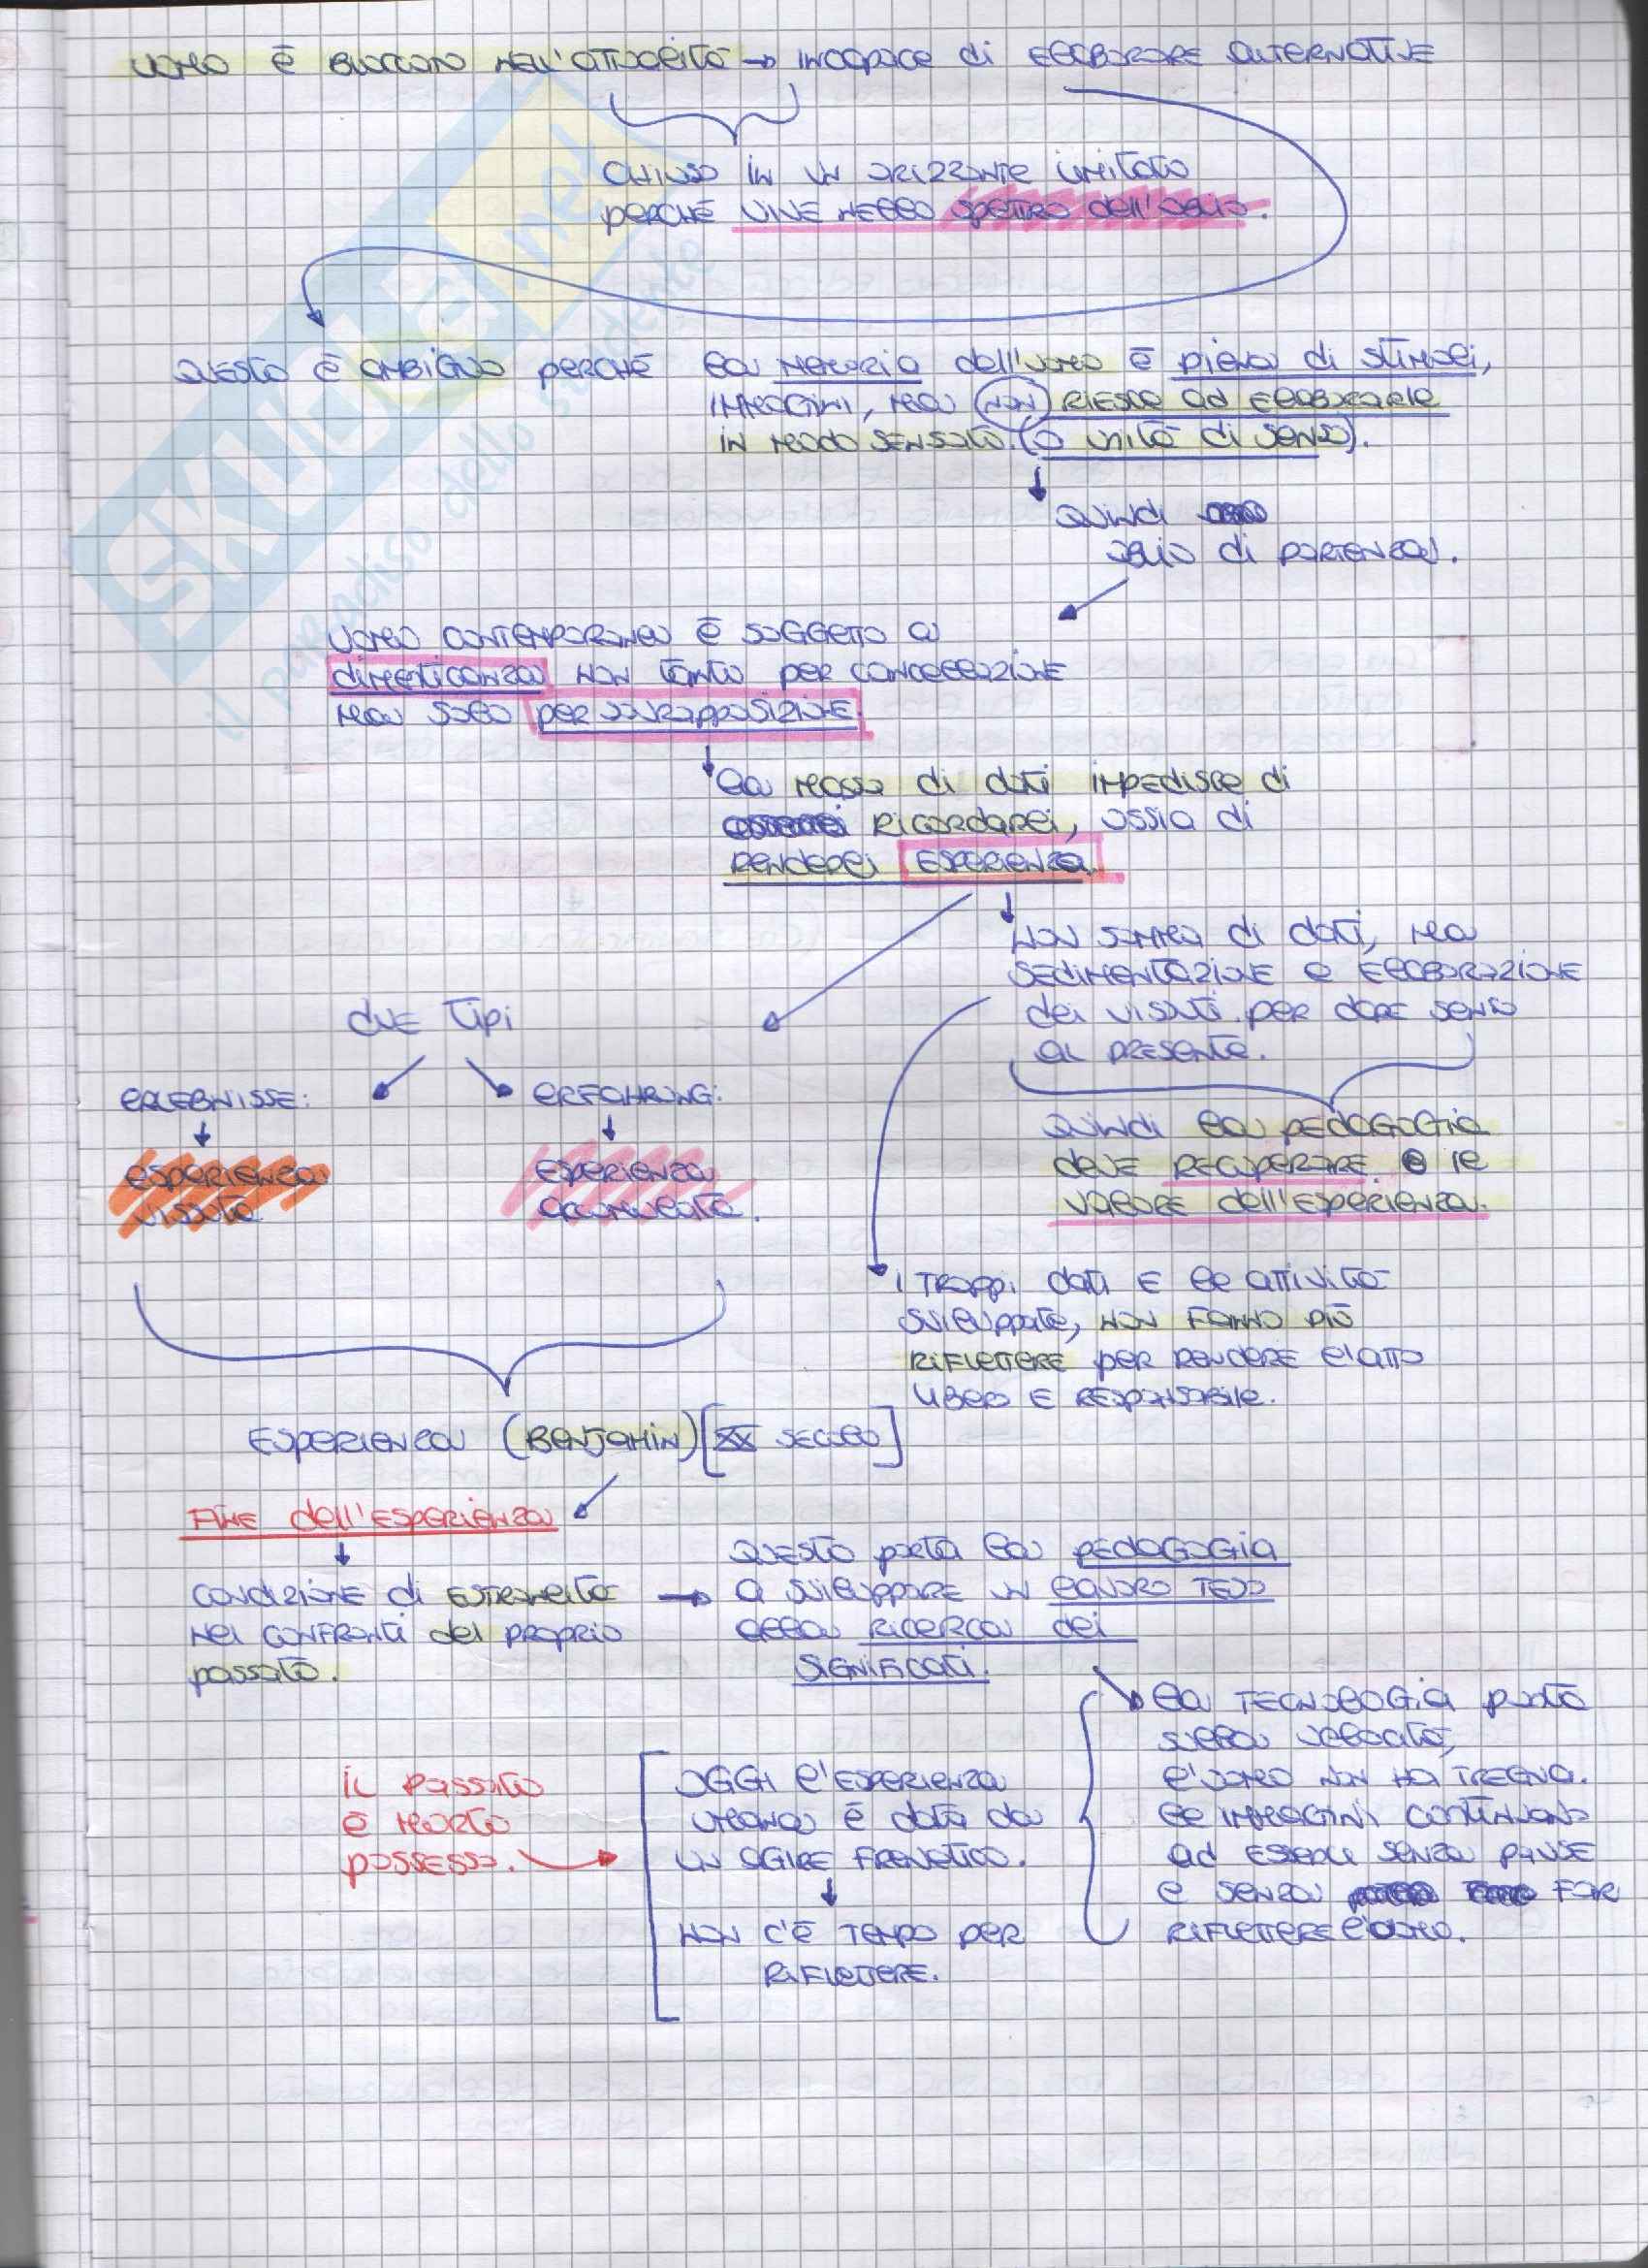 UOMO È BLOCCATO NELL'ATTUALITÀ → INCAPACE di ELABORARE ALTERNATIVE
CHIUSO IN UN ORIZZONTE LIMITATO
PERCHÉ VIVE NELLO SPETTRO dell'OBLIO.
QUESTO È AMBIGUO PERCHÉ la MEMORIA dell'UOMO È PIENA di STIMOLI,
IMMAGINI, MA NON RIESCE AD ELABORARLE
IN MODO SENSATO. (O UNITÀ di SENSO).
QUINDI
OBLIO di PARTENZA.
UOMO CONTEMPORANEO È SOGGETTO A
DIMENTICANZA NON TANTO PER CANCELLAZIONE
MA SOLO PER SOVRAPPOSIZIONE.
la MASSA di dati IMPEDISCE di
RICORDARLI, OSSIA di
RENDERLI ESPERIENZA.
NON SOMMA di dati, MA
SEDIMENTAZIONE e ELABORAZIONE
dei VISSUTI PER DARE SENSO
AL PRESENTE.
DUE TIPI
ERLEBNISSE:
ERFAHRUNG:
ESPERIENZA
VISSUTA
ESPERIENZA
ACCUMULATA.
QUINDI la PEDAGOGIA
DEVE RECUPERARE il
VALORE dell'ESPERIENZA.
I TROPPI dati E le ATTIVITÀ
SVILUPPATE, NON FANNO PIÙ
RIFLETTERE PER RENDERE l'ATTO
LIBERO E RESPONSABILE.
ESPERIENZA (BENJAMIN) [XX SECOLO]
FINE dell'ESPERIENZA
CONDIZIONE di ESTRANEITÀ
NEI CONFRONTI del PROPRIO
PASSATO.
→ QUESTO porta la PEDAGOGIA
A SVILUPPARE UN LAVORO TESO
alla RICERCA dei
SIGNIFICATI.
la TECNOLOGIA PUNTA
sulla VELOCITÀ,
l'UOMO NON HA TREGUA.
le IMMAGINI CONTINUANO
AD ESSERCI SENZA PAUSE
e SENZA FAR
RIFLETTERE l'UOMO.
IL PASSATO
È MORTO
POSSESSO.
OGGI l'ESPERIENZA
UMANA È data da
UN AGIRE FRENETICO.
NON C'È TEMPO PER
RIFLETTERE.
SKUOLA.net
il paradiso dello studente